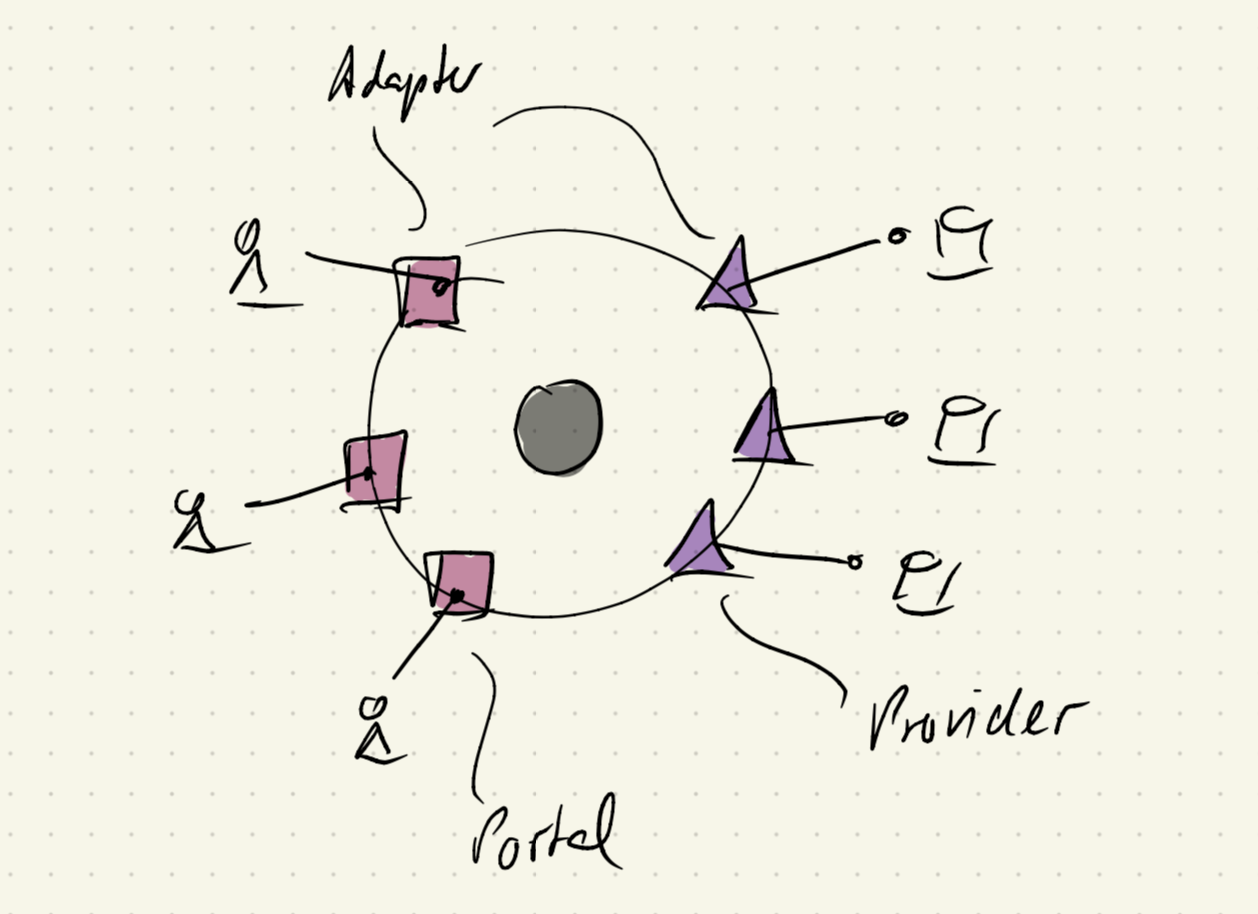 Adapter
Provider
Portal